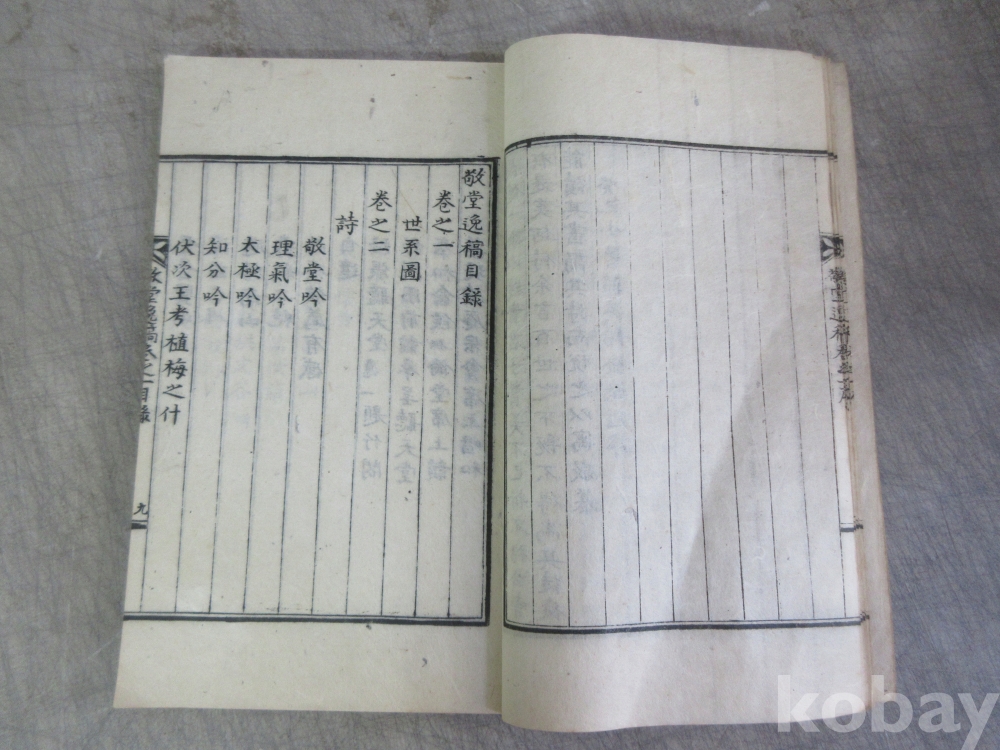 敬堂逸稿目錄
卷之一
世系圖
卷之二
詩
敬堂吟
理氣吟
太極吟
知分吟
伏次王考植梅之什
敬堂逸稿卷之一目錄
九
kobay